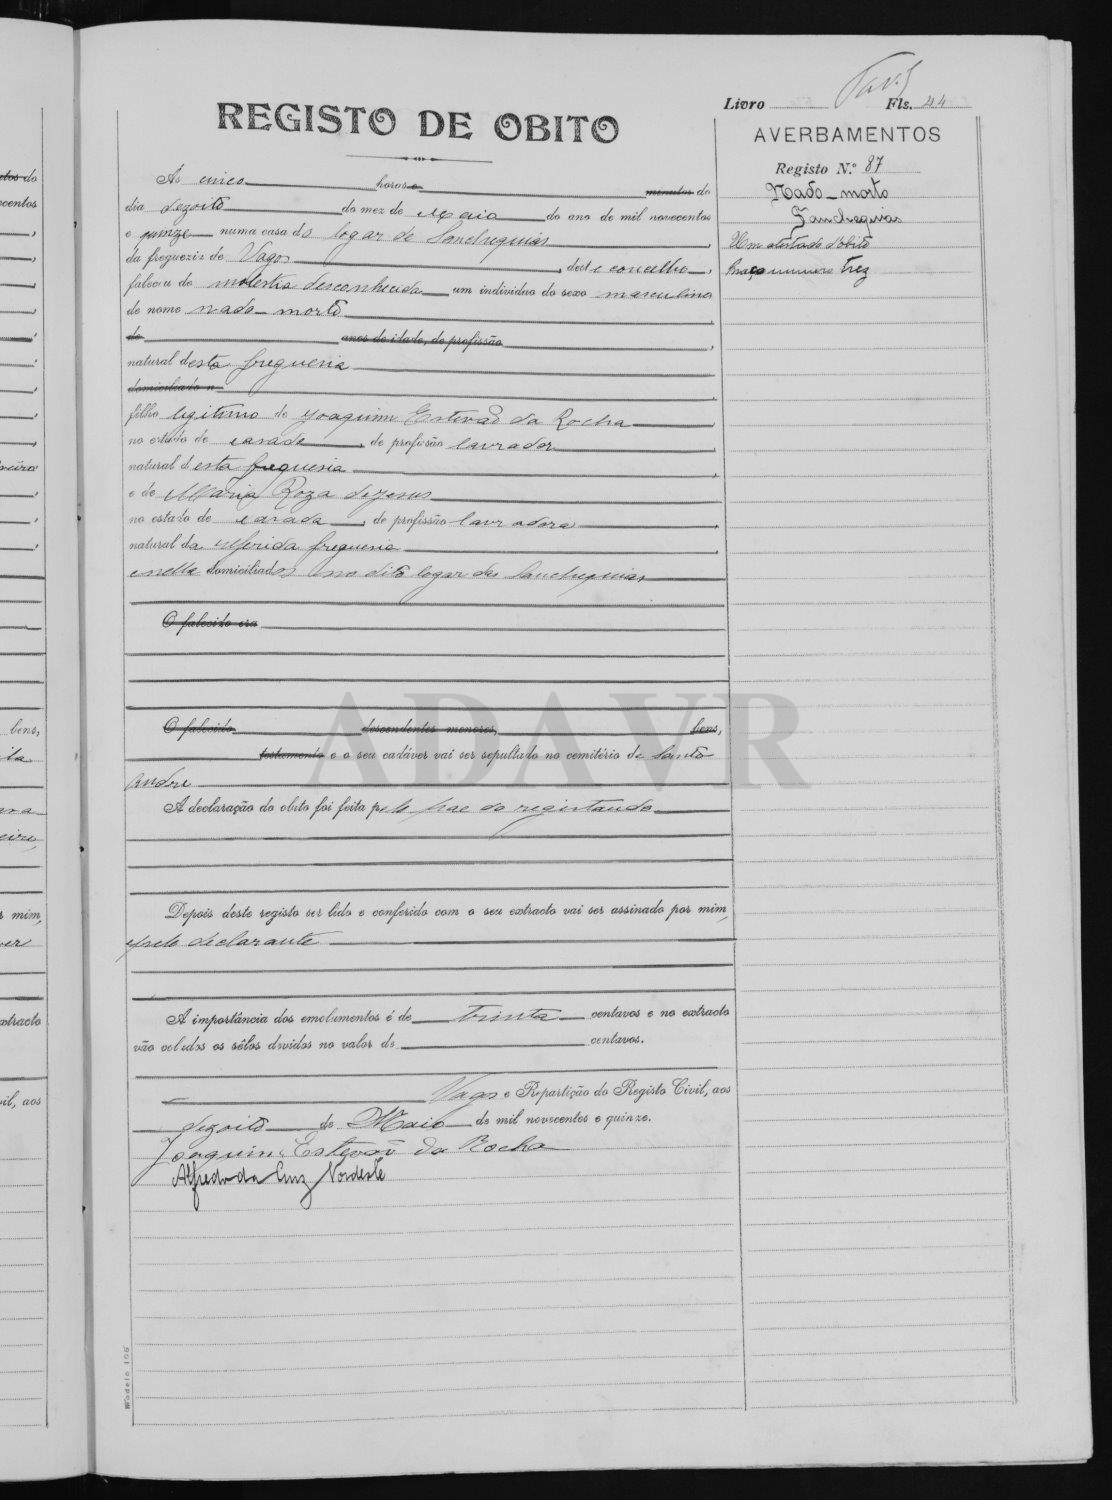 Livro Fls. 44
REGISTO DE OBITO
AVERBAMENTOS
Registo N.º 87
Nado-morto
Sanchequias
Um atestado d'obito
Maço numero trez
As cinco horas e minutos do
dia dezoito do mez de Maio do ano de mil novecentos
e quinze numa casa do logar de Sanchequias
da freguezia de Vagos, deste concelho,
faleceu de molestia desconhecida um individuo do sexo masculino
de nome nado-morto
de anos de idade, de profissão
natural desta freguesia
domiciliado n
filho legitimo de Joaquim Estevão da Rocha
no estado de casado, de profissão lavrador
natural desta freguesia
e de Maria Roza de Jesus
no estado de casada, de profissão lavradora
natural da referida freguesia
e nella domiciliados no dito logar das Sanchequias
O falecido era
O falecido descendentes menores, bens,
testamento e o seu cadáver vai ser sepultado no cemitério de Santo
André
A declaração do obito foi feita pelo pae do registando
Depois deste registo ser lido e conferido com o seu extracto vai ser assinado por mim,
e pelo declarante
A importância dos emolumentos é de trinta centavos e no extracto
vão colados os sêlos devidos no valor de centavos.
Vagos e Repartição do Registo Civil, aos
dezoito de Maio de mil novecentos e quinze.
Joaquim Estevão da Rocha
Alfredo da Cruz Nordeste
ADAVR
Modelo 106
bens,
mim,
extracto
aos